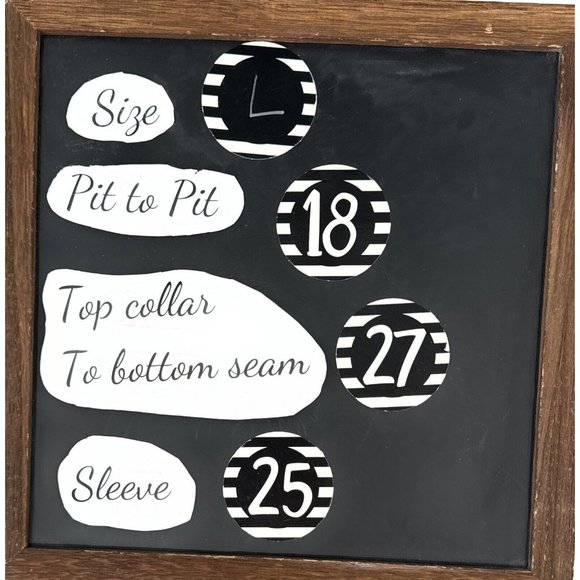 Size L
Pit to Pit 18
Top collar
To bottom seam 27
Sleeve 25